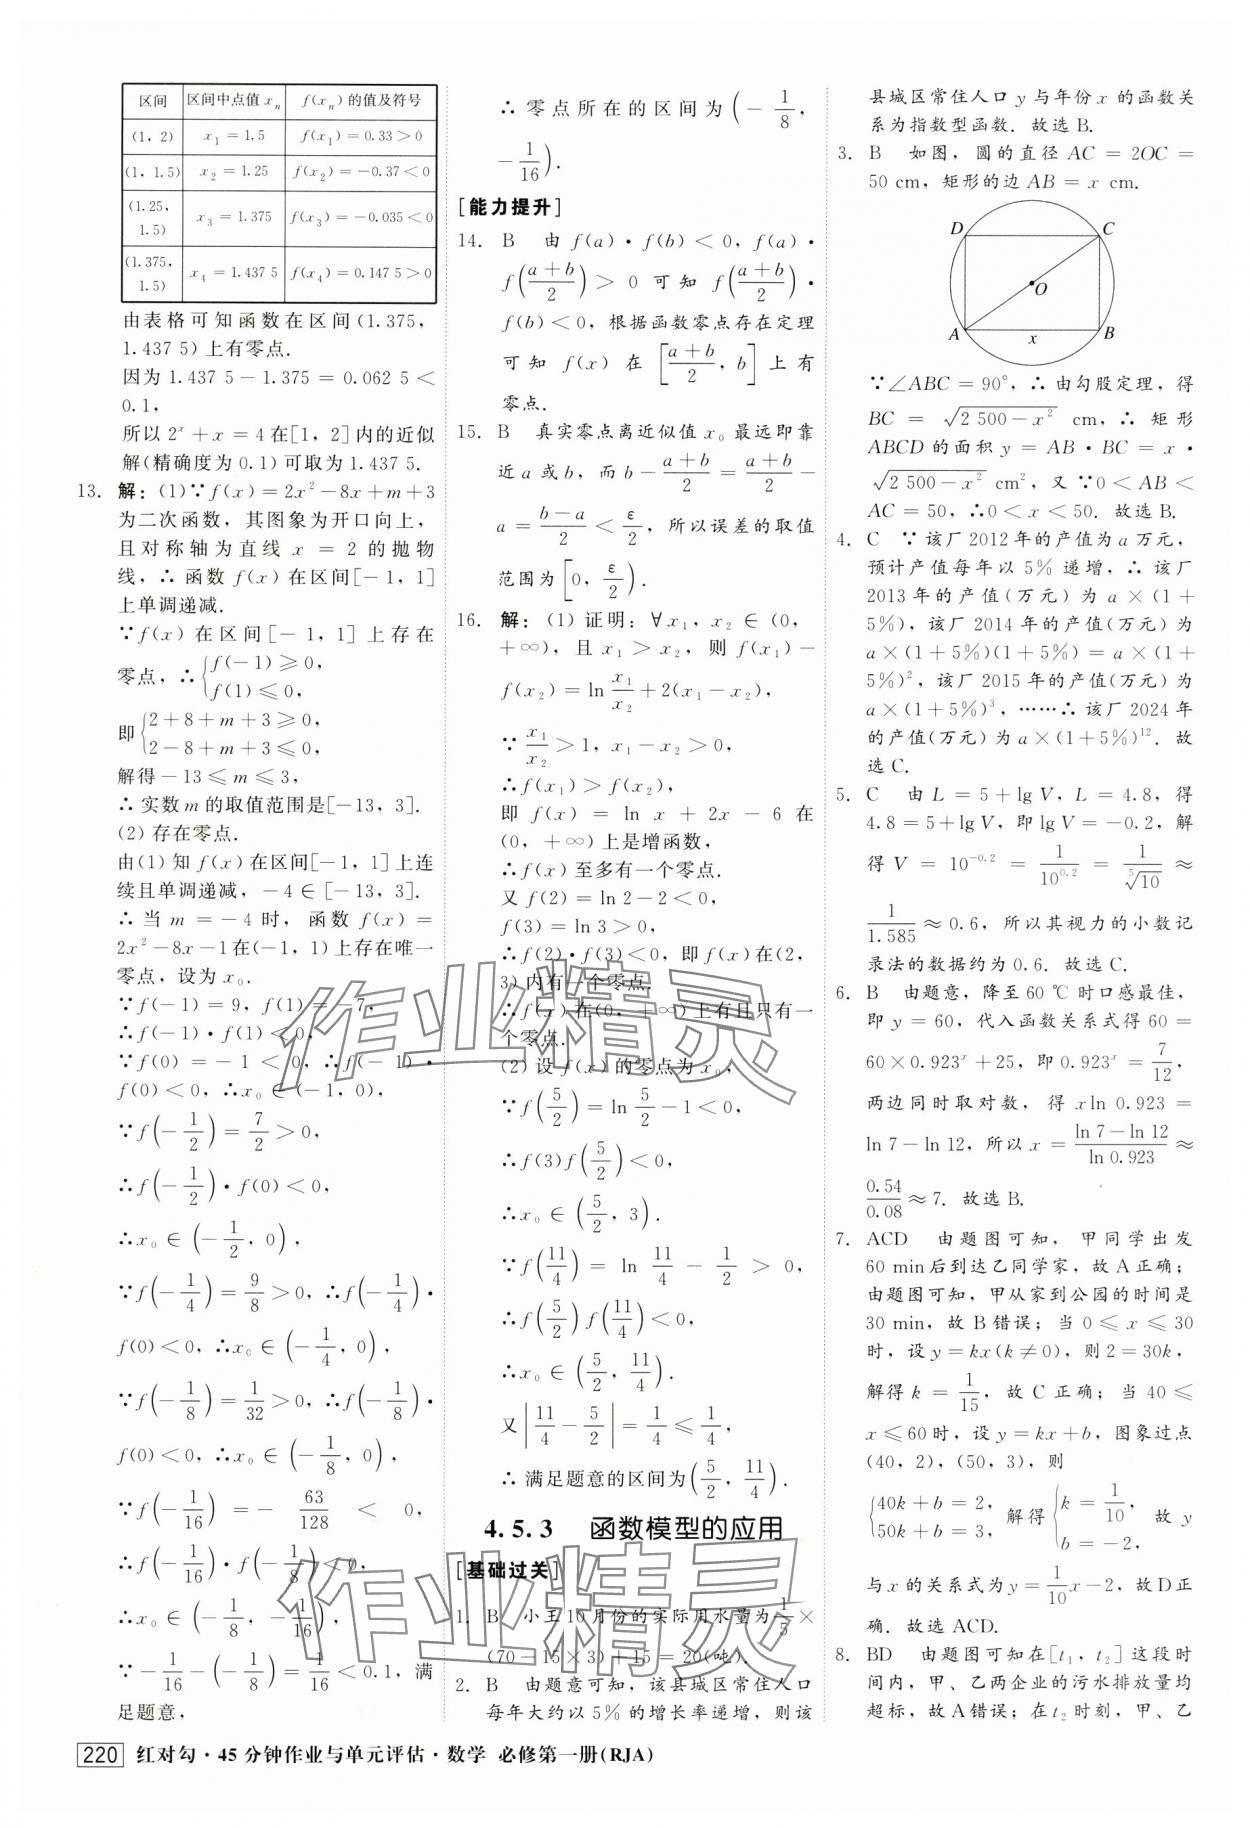 区间 区间中点值 xₙ f(xₙ)的值及符号
(1, 2) x₁=1.5 f(x₁)=0.33>0
(1, 1.5) x₂=1.25 f(x₂)=-0.37<0
(1.25, 1.5) x₃=1.375 f(x₃)=-0.035<0
(1.375, 1.5) x₄=1.437 5 f(x₄)=0.147 5>0
由表格可知函数在区间(1.375,
1.437 5)上有零点.
因为1.437 5-1.375=0.062 5<
0.1,
所以2ˣ+x=4在[1, 2]内的近似
解(精确度为0.1)可取为1.437 5.
13. 解:(1)∵f(x)=2x²-8x+m+3
为二次函数，其图象为开口向上，
且对称轴为直线 x=2 的抛物
线，∴函数 f(x)在区间[-1, 1]
上单调递减.
∵f(x)在区间[-1, 1]上存在
零点，∴{f(-1)≥0, f(1)≤0,
即{2+8+m+3≥0, 2-8+m+3≤0,
解得-13≤m≤3,
∴实数m的取值范围是[-13, 3].
(2)存在零点.
由(1)知 f(x)在区间[-1, 1]上连
续且单调递减，-4∈[-13, 3].
∴当 m=-4 时，函数 f(x)=
2x²-8x-1在(-1, 1)上存在唯一
零点，设为 x₀.
∵f(-1)=9, f(1)=-7,
∴f(-1)·f(1)<0,
∵f(0)=-1<0, ∴f(-1)·
f(0)<0, ∴x₀∈(-1, 0),
∵f(-1/2)=7/2>0,
∴f(-1/2)·f(0)<0,
∴x₀∈(-1/2, 0),
∵f(-1/4)=9/8>0, ∴f(-1/4)·
f(0)<0, ∴x₀∈(-1/4, 0),
∵f(-1/8)=1/32>0, ∴f(-1/8)·
f(0)<0, ∴x₀∈(-1/8, 0),
∵f(-1/16)=-63/128<0,
∴f(-1/16)·f(-1/8)<0,
∴x₀∈(-1/8, -1/16),
∵-1/16-(-1/8)=1/16<0.1, 满
足题意，
∴零点所在的区间为(-1/8,
-1/16).
[能力提升]
14. B 由 f(a)·f(b)<0, f(a)·
f((a+b)/2)>0 可知 f((a+b)/2)·
f(b)<0, 根据函数零点存在定理
可知 f(x) 在 [(a+b)/2, b] 上有
零点.
15. B 真实零点离近似值 x₀ 最远即靠
近a或b，而b-(a+b)/2=(a+b)/2-
a=(b-a)/2<ε/2, 所以误差的取值
范围为[0, ε/2).
16. 解:(1)证明：∀x₁, x₂∈(0,
+∞), 且 x₁>x₂, 则 f(x₁)-
f(x₂)=ln x₁/x₂+2(x₁-x₂),
∵x₁/x₂>1, x₁-x₂>0,
∴f(x₁)>f(x₂),
即 f(x)=ln x+2x-6 在
(0, +∞)上是增函数，
∴f(x)至多有一个零点.
又 f(2)=ln 2-2<0,
f(3)=ln 3>0,
∴f(2)·f(3)<0, 即f(x)在(2,
3)内有一个零点.
∴f(x)在(0, +∞)上有且只有一
个零点.
(2)设 f(x)的零点为 x₀,
∵f(5/2)=ln 5/2-1<0,
∴f(3)f(5/2)<0,
∴x₀∈(5/2, 3).
∵f(11/4)=ln 11/4-1/2>0,
∴f(5/2)f(11/4)<0,
∴x₀∈(5/2, 11/4).
又|11/4-5/2|=1/4≤1/4,
∴满足题意的区间为(5/2, 11/4).
4.5.3 函数模型的应用
[基础过关]
1. B 小王10月份的实际用水量为1/5×
(70-15×3)+15=20(吨).
2. B 由题意可知，该县城区常住人口
每年大约以5%的增长率递增，则该
县城区常住人口 y 与年份 x 的函数关
系为指数型函数. 故选B.
3. B 如图，圆的直径 AC=2OC=
50 cm, 矩形的边 AB=x cm.
D C
O
A x B
∵∠ABC=90°, ∴由勾股定理，得
BC=√(2 500-x²) cm, ∴矩形
ABCD的面积 y=AB·BC=x·
√(2 500-x²) cm², 又∵0<AB<
AC=50, ∴0<x<50. 故选B.
4. C ∵该厂2012年的产值为a万元，
预计产值每年以5%递增，∴该厂
2013年的产值(万元)为 a×(1+
5%), 该厂2014年的产值(万元)为
a×(1+5%)(1+5%)=a×(1+
5%)², 该厂2015年的产值(万元)为
a×(1+5%)³, ……∴该厂2024年
的产值(万元)为a×(1+5%)¹². 故
选C.
5. C 由 L=5+lg V, L=4.8, 得
4.8=5+lg V, 即lg V=-0.2, 解
得 V=10⁻⁰·²=1/10⁰·²=1/⁵√10≈
1/1.585≈0.6, 所以其视力的小数记
录法的数据约为0.6. 故选C.
6. B 由题意，降至60 ℃时口感最佳，
即y=60, 代入函数关系式得60=
60×0.923ˣ+25, 即0.923ˣ=7/12,
两边同时取对数，得 xln 0.923=
ln 7-ln 12, 所以 x=(ln 7-ln 12)/ln 0.923≈
0.54/0.08≈7. 故选B.
7. ACD 由题图可知，甲同学出发
60 min后到达乙同学家，故A正确；
由题图可知，甲从家到公园的时间是
30 min, 故B错误；当0≤x≤30
时，设y=kx(k≠0), 则2=30k,
解得k=1/15, 故C正确；当40≤
x≤60时，设y=kx+b, 图象过点
(40, 2), (50, 3), 则
{40k+b=2, 50k+b=3, 解得{k=1/10, b=-2, 故 y
与x的关系式为y=1/10x-2, 故D正
确. 故选ACD.
8. BD 由题图可知在[t₁, t₂]这段时
间内，甲、乙两企业的污水排放量均
超标，故A错误；在t₂时刻，甲、乙
220 红对勾·45分钟作业与单元评估·数学 必修第一册(RJA)
作业精灵
作业精灵